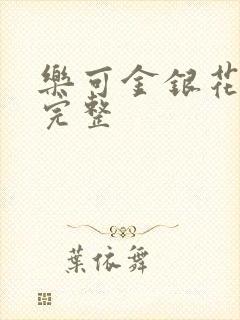 樂可金銀花
完整
葉依舞